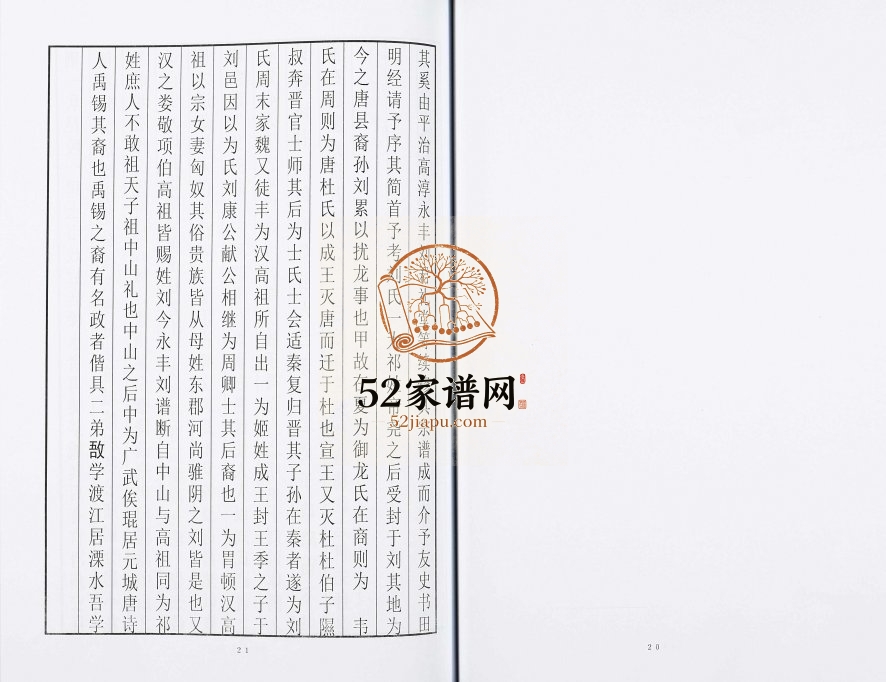 其奚由平治高淳永丰等续宗谱成而介予友史书田
明经请予序其简首予考刘氏一祁之后受封于刘其地为
今之唐县裔孙刘累以扰龙事也甲故在夏为御龙氏在商则为 韦
氏在周则为唐杜氏以成王灭唐而迁于杜也宣王又灭杜杜伯子隰
叔奔晋官士师其后为士氏士会适秦复归晋其子孙在秦者遂为刘
氏周末家魏又徒丰为汉高祖所自出一为姬姓成王封王季之子于
刘邑因以为氏刘康公献公相继为周卿士其后裔也一为冒顿汉高
祖以宗女妻匈奴其俗贵族皆从母姓东郡河尚骓阴之刘皆是也又
汉之娄敬项伯高祖皆赐姓刘今永丰刘谱断自中山与高祖同为祁
姓庶人不敢祖天子祖中山礼也中山之后中为广武俟琨居元城唐诗
人禹锡其裔也禹锡之裔有名政者偕具二弟敔学渡江居溧水吾学
21
20
52家谱网
52jiapu.com